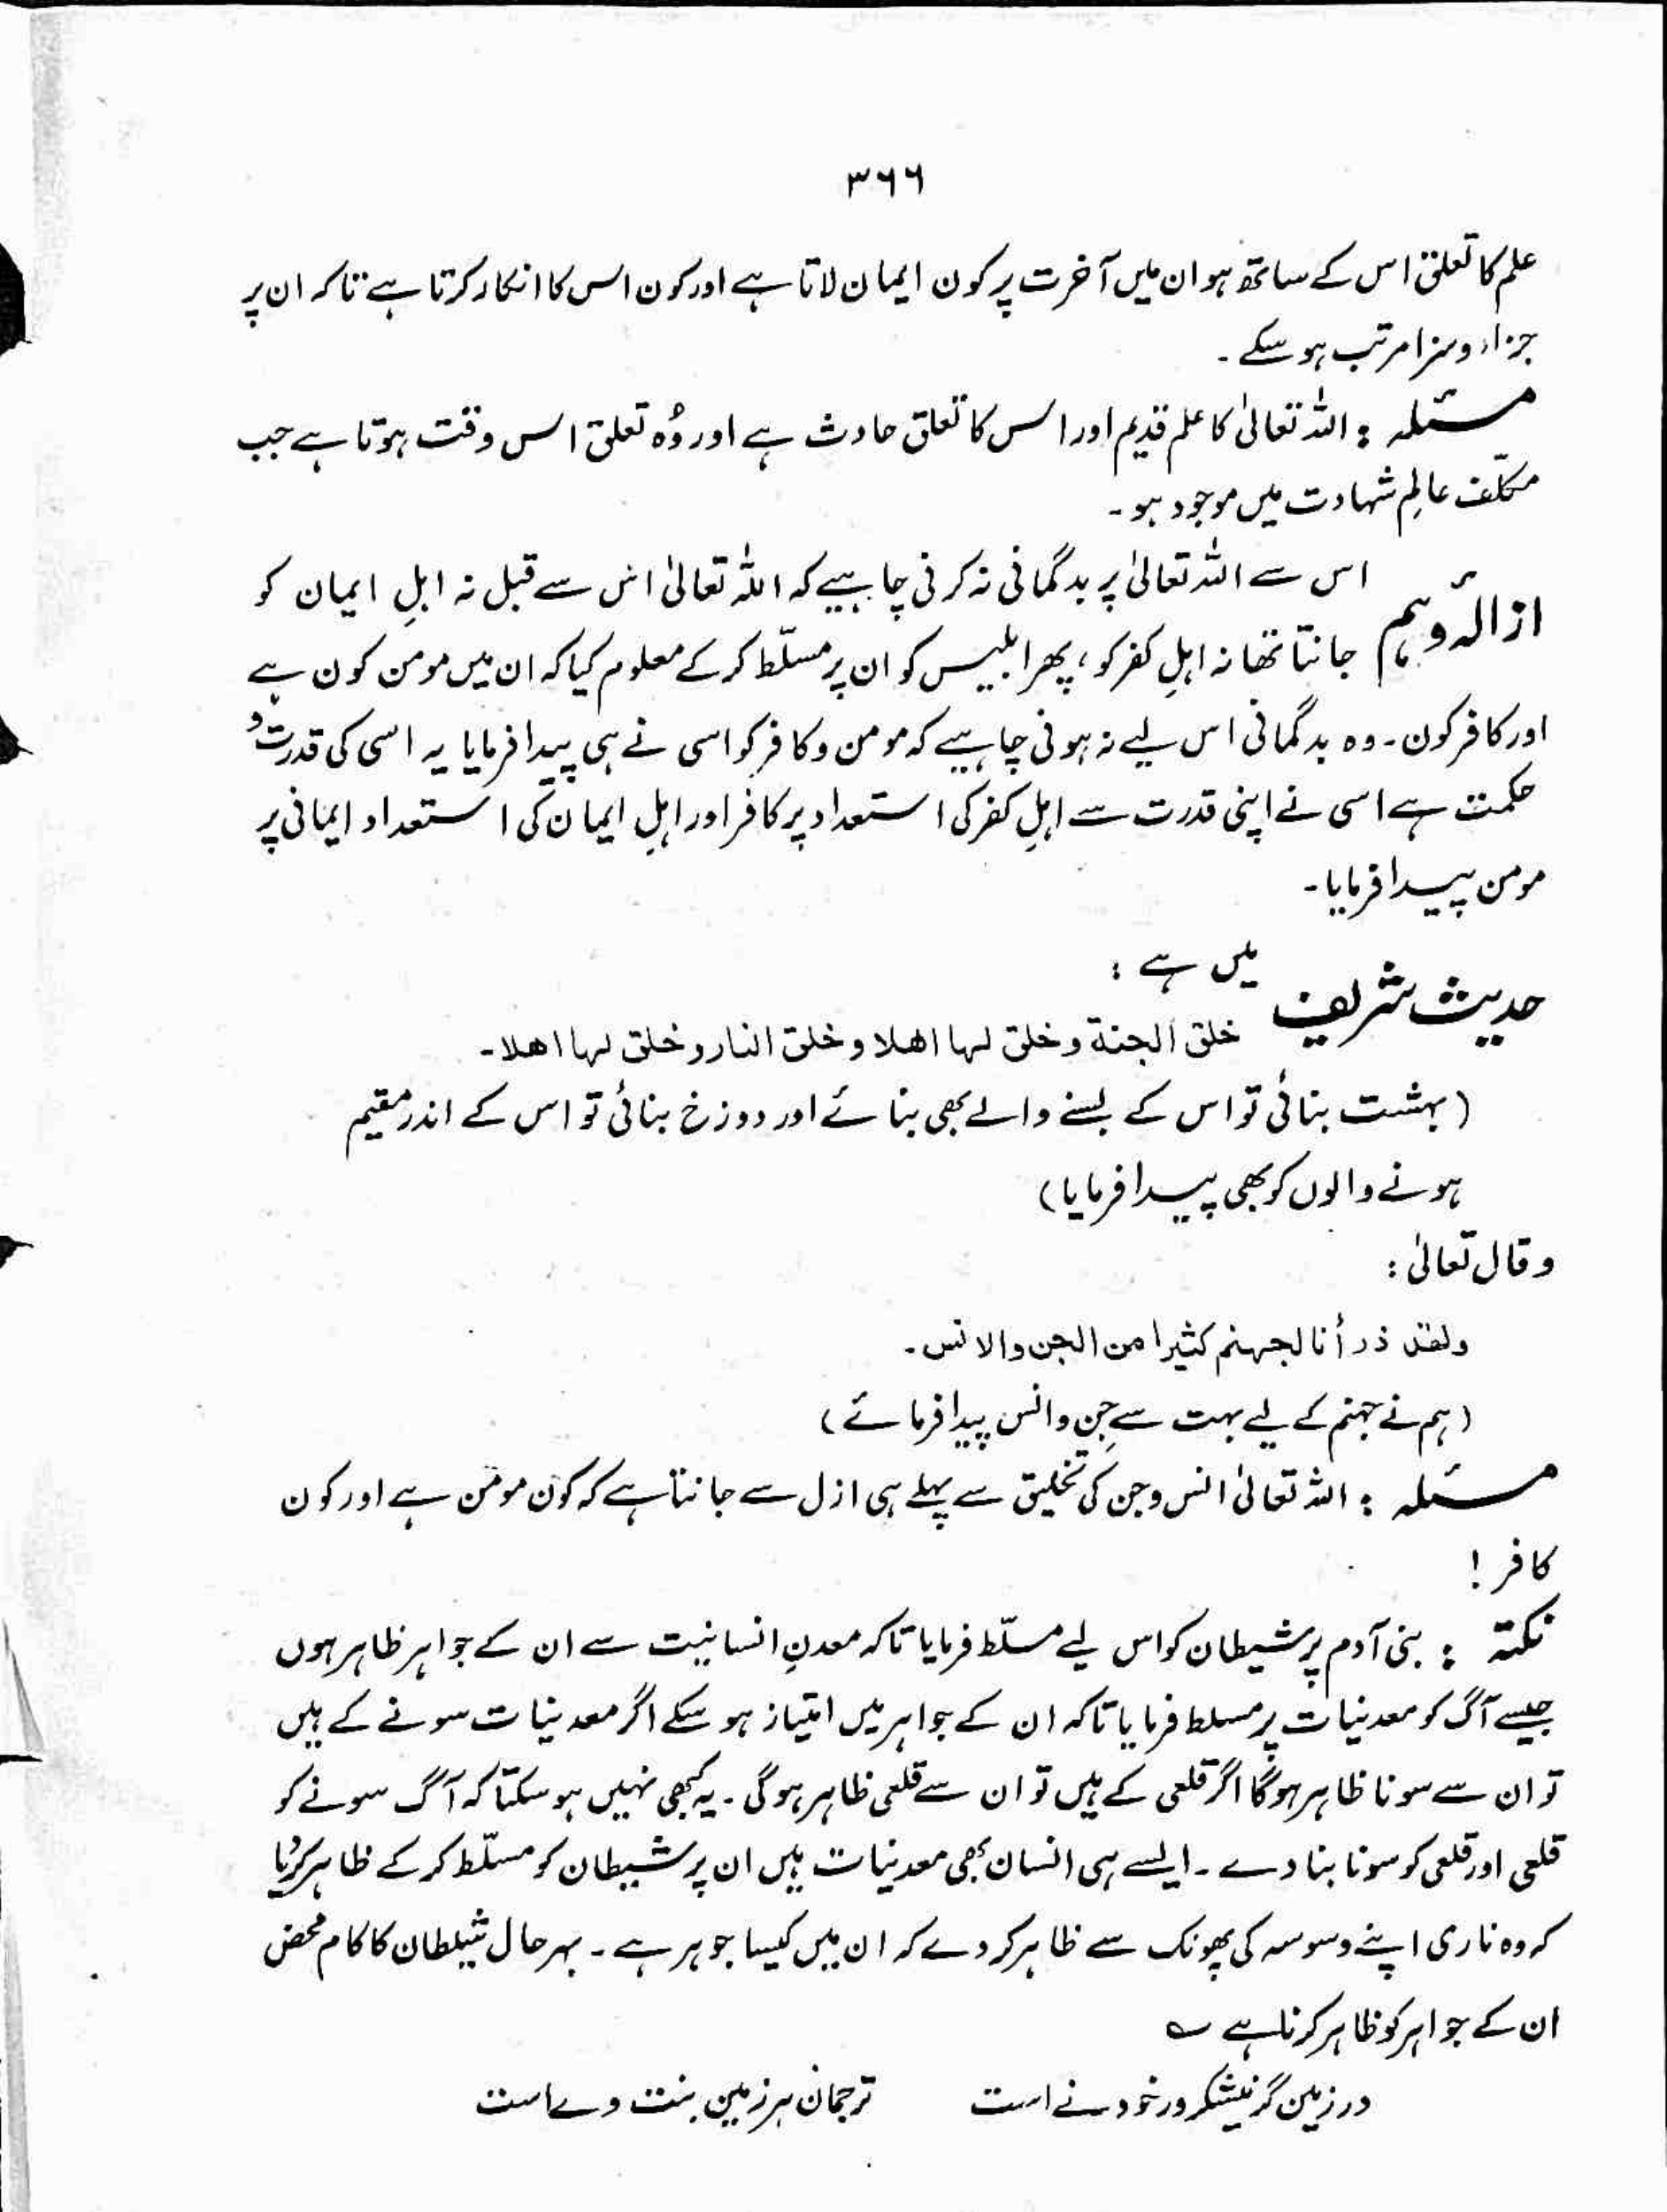 ۳۶۶
علم کا تعلق اس کے ساتھ ہو ان میں آخرت پر کون ایمان لاتا ہے اور کون اس کا انکار کرتا ہے تاکہ ان پر
جزاء و سزا مرتب ہو سکے ۔
مسئلہ : اللہ تعالیٰ کا علم قدیم اور اس کا تعلق حادث ہے اور وُہ تعلق اس وقت ہوتا ہے جب
مکلّف عالمِ شہادت میں موجود ہو ۔
اس سے اللہ تعالیٰ پر بدگمانی نہ کرنی چاہیے کہ اللہ تعالیٰ اس سے قبل نہ اہلِ ایمان کو
ازالۂ وہم جانتا تھا نہ اہلِ کفر کو ، پھر ابلیس کو ان پر مسلّط کر کے معلوم کیا کہ ان میں مومن کون ہے
اور کافر کون ۔ وہ بدگمانی اس لیے نہ ہونی چاہیے کہ مومن و کافر کو اسی نے ہی پیدا فرمایا یہ اسی کی قدرت و
حکمت ہے اسی نے اپنی قدرت سے اہلِ کفر کی استعداد پر کافر اور اہلِ ایمان کی استعداد ایمانی پر
مومن پیدا فرمایا ۔
حدیث شریف میں ہے :
خلق الجنة وخلق لها اهلا وخلق النار وخلق لها اهلا ۔
( بہشت بنائی تو اس کے بسنے والے بھی بنائے اور دوزخ بنائی تو اس کے اندر مقیم
ہونے والوں کو بھی پیدا فرمایا )
وقال تعالیٰ :
ولقد ذرأنا لجهنم كثيرا من الجن والانس ۔
( ہم نے جہنم کے لیے بہت سے جِن و انس پیدا فرمائے )
مسئلہ : اللہ تعالیٰ انس و جن کی تخلیق سے پہلے ہی ازل سے جانتا ہے کہ کون مومن ہے اور کون
کافر !
نکتہ : بنی آدم پر شیطان کو اس لیے مسلّط فرمایا تاکہ معدنِ انسانیت سے ان کے جواہر ظاہر ہوں
جیسے آگ کو معدنیات پر مسلط فرمایا تاکہ ان کے جواہر میں امتیاز ہو سکے اگر معدنیات سونے کے ہیں
تو ان سے سونا ظاہر ہوگا اگر قلعی کے ہیں تو ان سے قلعی ظاہر ہوگی ۔ یہ کبھی نہیں ہو سکتا کہ آگ سونے کو
قلعی اور قلعی کو سونا بنا دے ۔ ایسے ہی انسان بھی معدنیات ہیں ان پر شیطان کو مسلّط کر کے ظاہر کر دیا
کہ وہ ناری اپنے وسوسہ کی پھونک سے ظاہر کر دے کہ ان میں کیسا جوہر ہے ۔ بہرحال شیطان کا کام محض
ان کے جواہر کو ظاہر کرنا ہے ؎
در زمین گر نیشکر ور خود نے است ترجمانِ ہر زمین بنت وے است